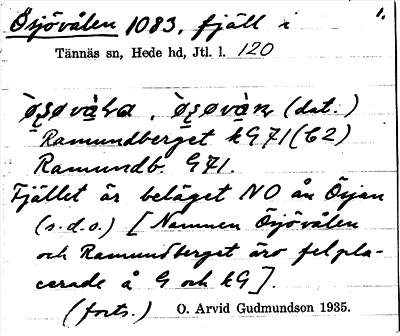 Ösjövålen 1083, fjäll i 1.
Tännäs sn, Hede hd, Jtl. l. 120
(dat.)
Ramundberget kG 71 (C2)
Ramundb. G 71.
Fjället är beläget NO ån Ösjan
(s.d.o.) [Namnen Ösjövålen
och Ramundberget äro felpla-
cerade å G och kG].
(forts.) O. Arvid Gudmundson 1935.